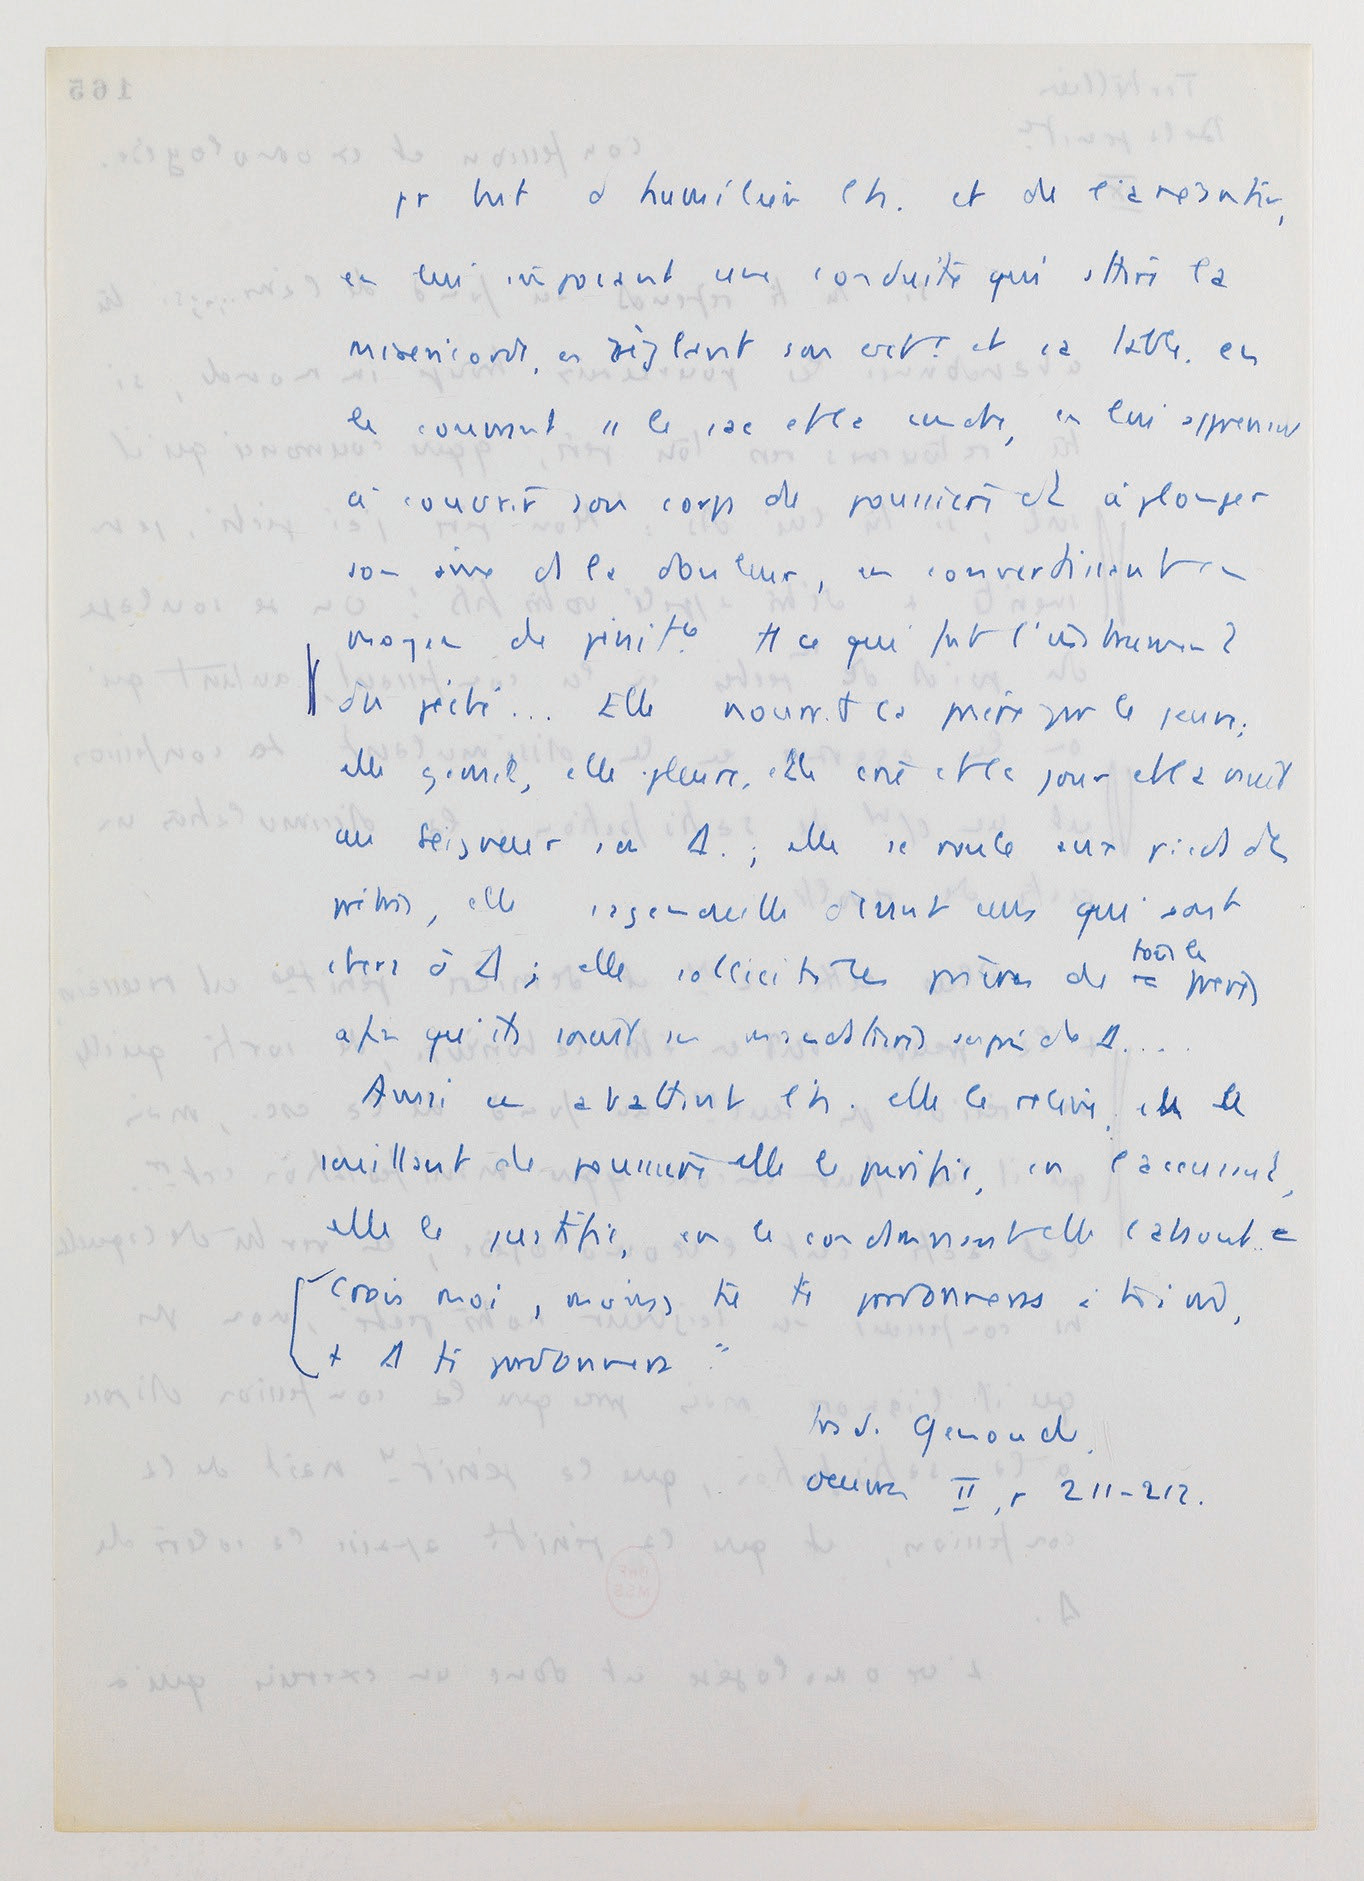 pr but d'humilier l'h. et de l'anéantir,
en lui imposant une conduite qui attire la
misericorde, en réglant son vêt.t et sa table. en
le couvrant ds le sac et la cendre, en lui apprenant
à couvrir son corps de poussière et à plonger
son âme ds la douleur, en convertissant en
moyen de pénit.ce tt ce qui fut l'instrument
du péché... Elle nourrit la prière par le jeune;
elle gémit, elle pleure, elle crie et le jour et la nuit
au Seigneur son Δ. ; elle se roule aux pieds des
prêtres, elle s'agenouille devant ceux qui sont
chers à Δ ; elle sollicite les prières de tous les frères
afin qu'ils soient ses ambassadeurs auprès de Δ....
Aussi en abattant l'h. elle le relève, en le
souillant de poussière elle le purifie, en l'accusant,
elle le justifie, en le condamnant elle l'absout..
Crois moi, moins tu te pardonneras à toi-même,
+ Δ te pardonnera "
trad. Genoude.
Oeuvres II, p 211-212.